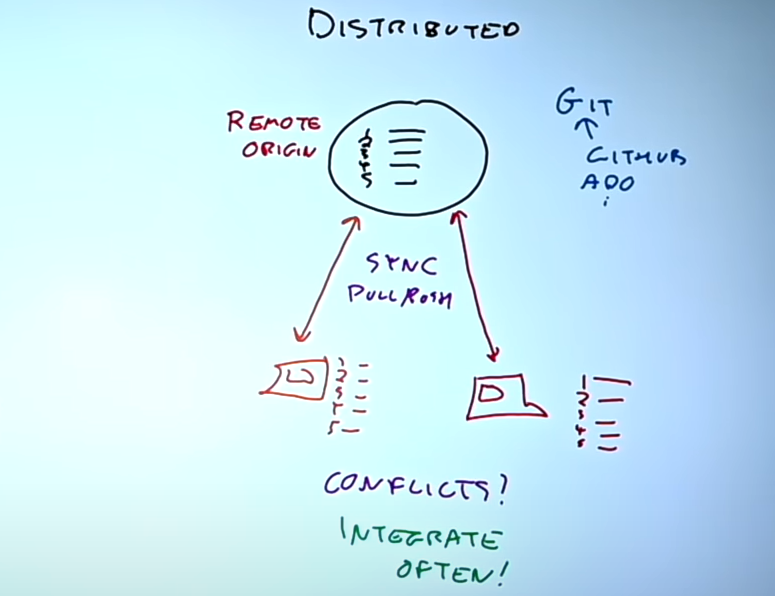 DISTRIBUTED
REMOTE
ORIGIN
1
2
3
4
5
GIT
GITHUB
ADO
SYNC
PULL/PUSH
1
2
3
4
5
1
2
3
4
5
CONFLICTS?
INTEGRATE
OFTEN!